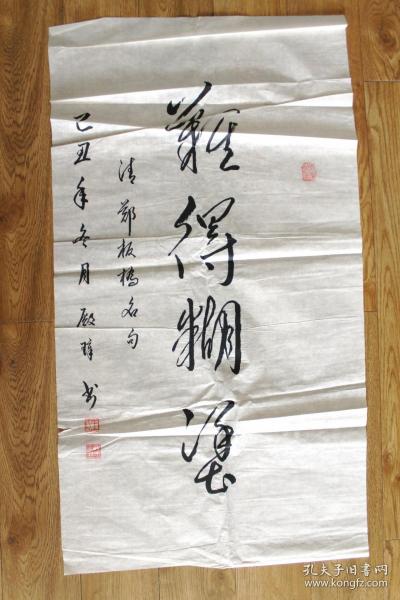 難得糊塗
清鄭板橋名句
己丑年冬月殷璋书
孔夫子旧书网
www.kongfz.com